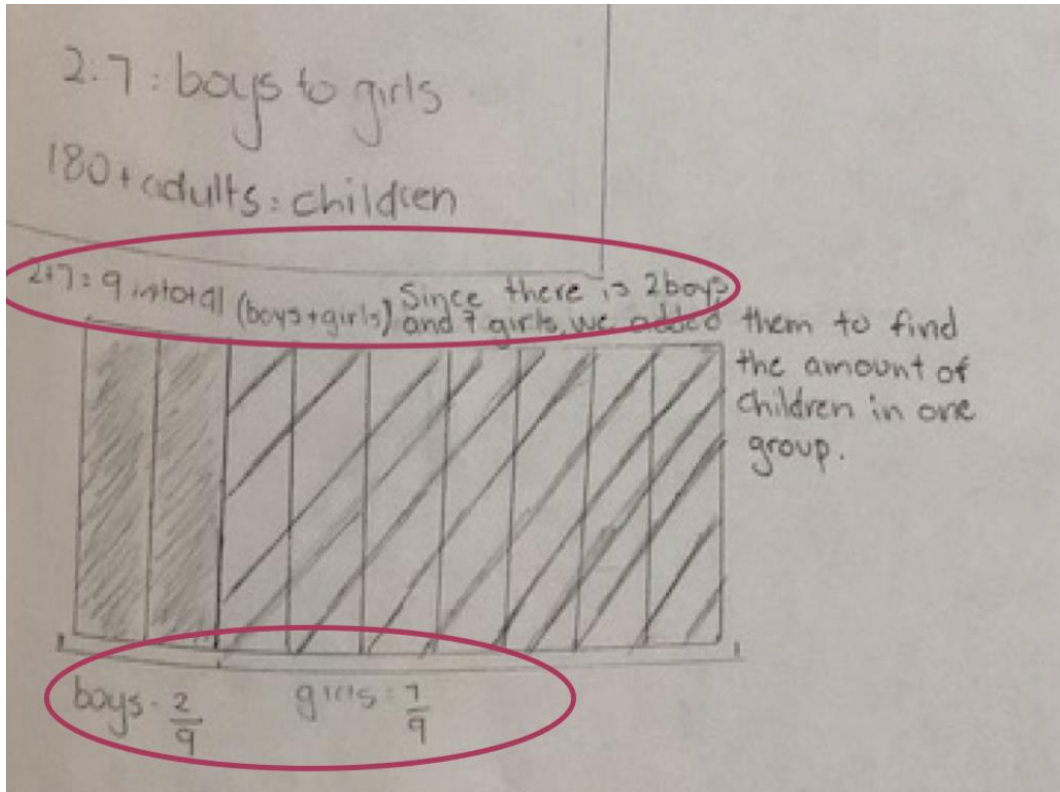 2:7 : boys to girls
180 + adults : children
2+7 = 9 in total (boys+girls) Since there is 2 boys
and 7 girls, we added them to find
the amount of
children in one
group.
boys = 2/9 girls = 7/9